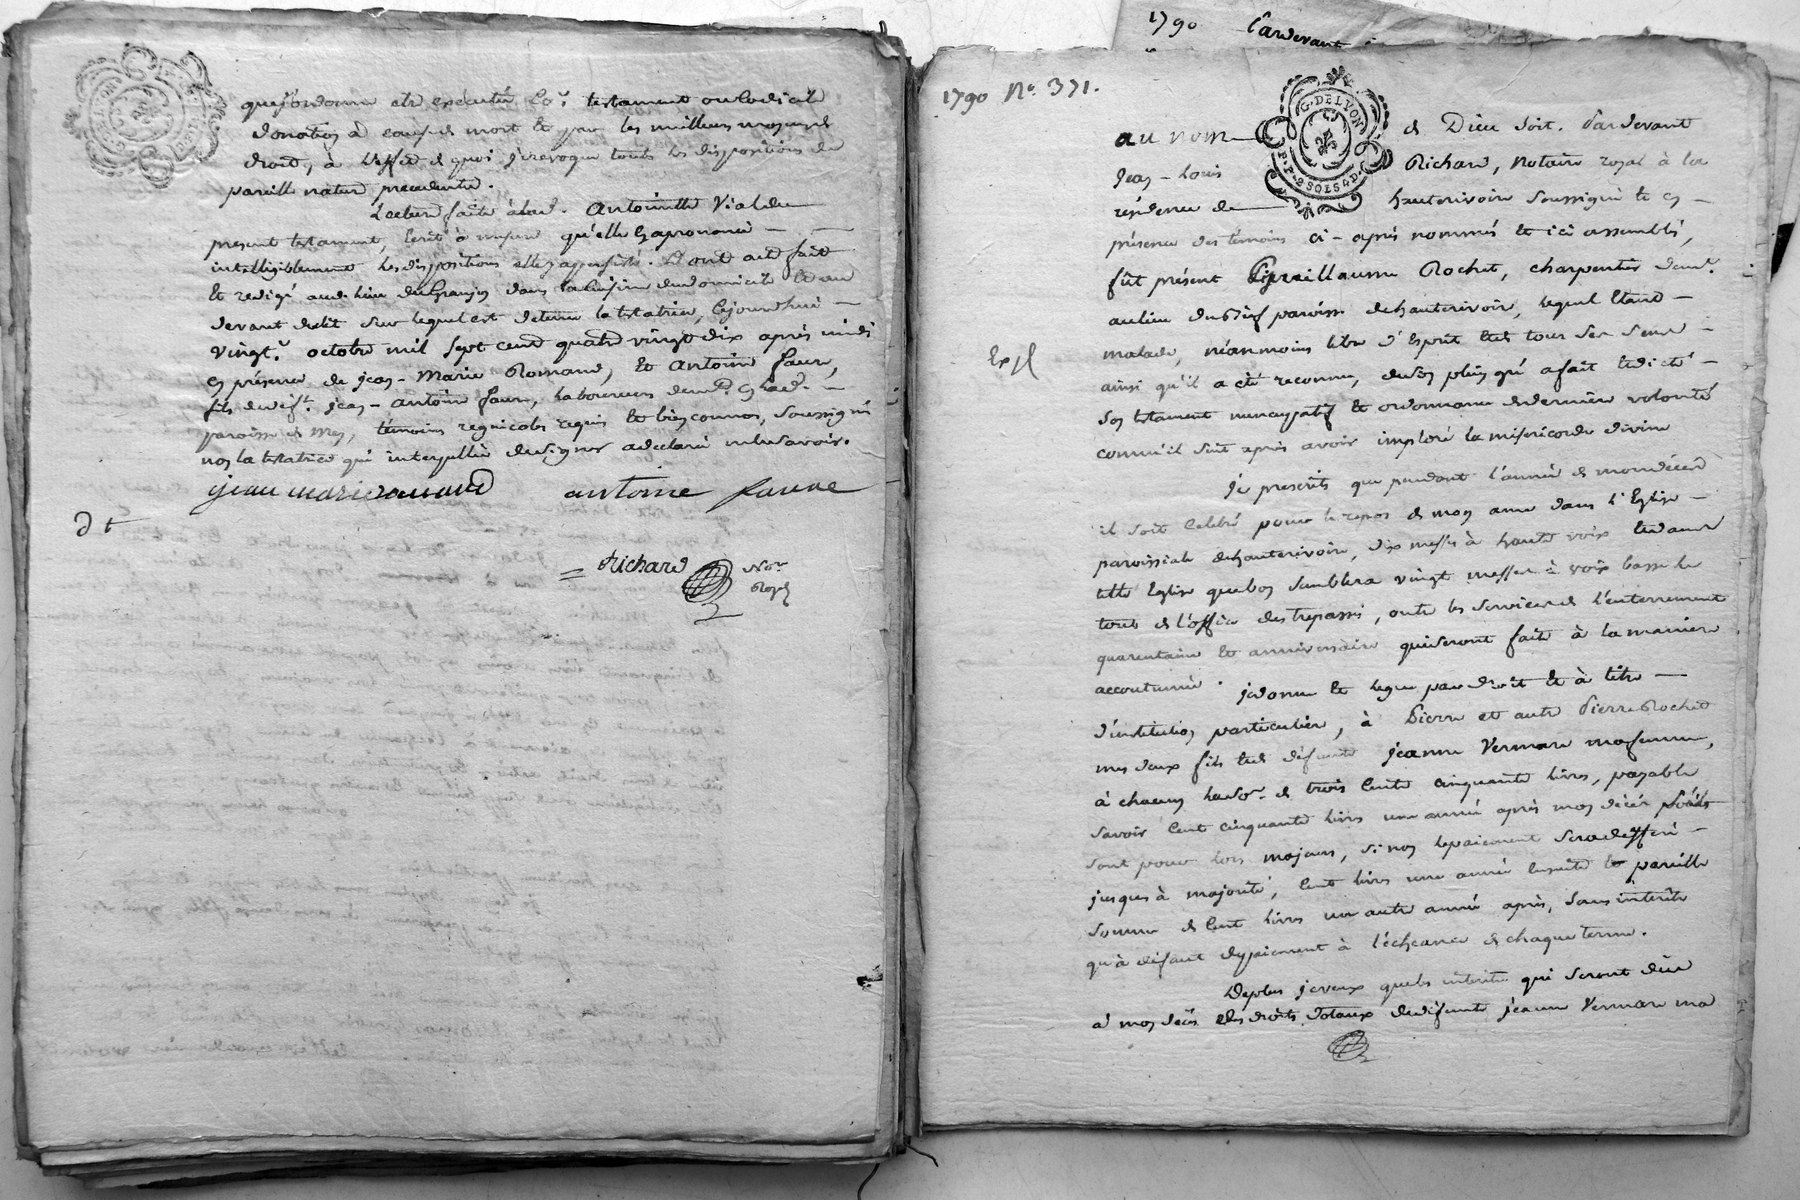 que j'ordonne etre exécuté Co.e testament ou Codicile
donation à cause de mort et par les meilleurs moyens de
droit, à l'effet de quoi je revoque touts les dispositions de
pareille nature precedente.
Lecture faite à lad. Antoinette Vial du
present testament, écrit à mesure qu'elle en a prononcé
intelligiblement les dispositions elle y a persisté. Dont acte fait
et redigé aud. lieu de Granjon dans la Cuisine du domicile et au
devant du lit sur lequel est detenue la testatrice, Cejourdhui
vingt.e octobre mil sept cent quatre vingt dix après midi
en présence de jean-Marie Romand, et Antoine faure,
fils de def.t jean-antoine faure, laboureurs dem.t en lad.
paroisse de mey, témoins regnicoles requis et bien connus, soussignés
non la testatrice qui interpellée de signer a declaré ne le savoir.
jean marie romand antoine faure
dt
= Richard No.re
Royal
1790 Pardevant
1790 N.o 371.
G. DE LYON
P.P. 2 SOLS 4 D.
au nom de Dieu soit. Pardevant
Jean-Louis Richard, Notaire royal à la
résidence de hauterivoire soussigné et en
présence des témoins ci-après nommés et ici assemblés,
fût présent Guillaume Rochet, charpentier dem.t
au lieu du Brief paroisse de hauterivoire, lequel étant
malade, néanmoins libre d'Esprit et de tous ses sens
ainsi qu'il a été reconnu, de son plein gré a fait et dicté
son testament nuncupatif et ordonnance de derniere volonté
comme il suit après avoir imploré la misericorde divine
Je prescrits que pendant l'année de mon décès
il soit Celebré pour le repos de mon ame dans l'Eglise
paroissiale de hauterivoire, dix messes à haute voix et dans
telle Eglise que bon semblera vingt messes à voix basse le
tout de l'office des trepassés, outre les services de l'enterrement
quarantaine et anniversaire qui seront fait à la maniere
accoutumée. je donne et legue par droit et à titre
d'institution particuliere, à Pierre et autre Pierre Rochet
mes deux fils et de défunte jeanne Vermare ma femme,
à chacun la so.e de trois Cents cinquante livres, payable
savoir Cent cinquante livres une année après mon décès s'ils
sont pour lors majeurs, sinon le paiement sera differé
jusques à majorité, Cent livres une année ensuite et pareille
somme de Cent livres une autre année après, sans intérêts
qu'à défaut de paiement à l'écheance de chaque terme.
Exp.é
Deplus je veux que les intérêts qui seront dûs
à mon décès des droits dotaux de défunte jeanne Vermare ma